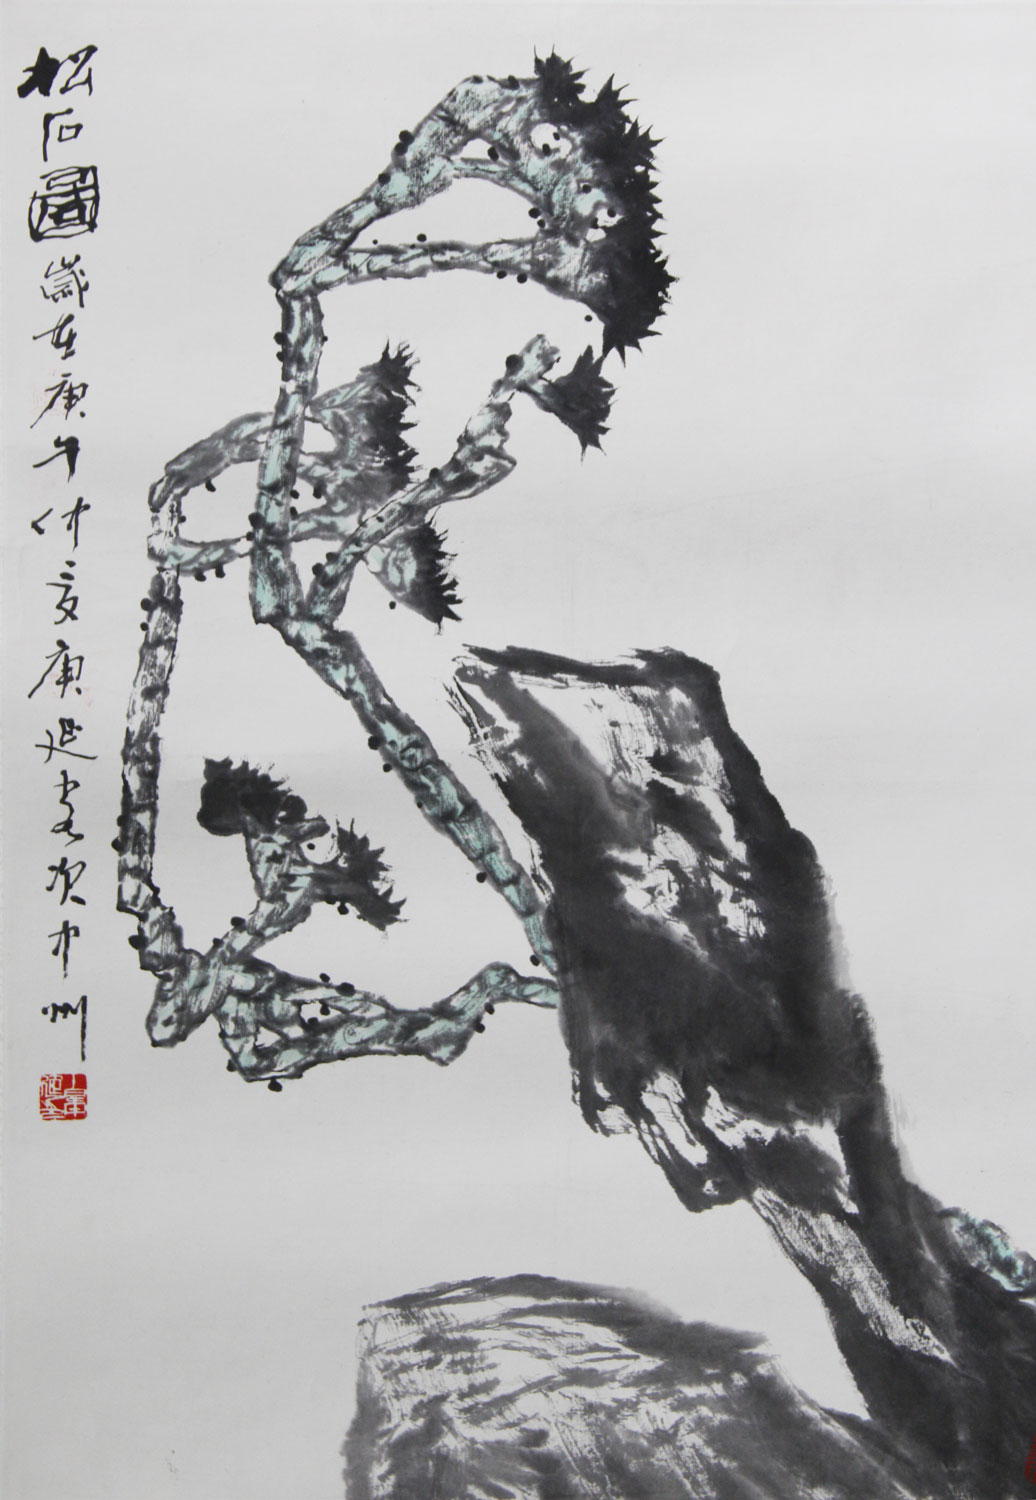 松石圖歲在庚午仲夏庚延客次中州